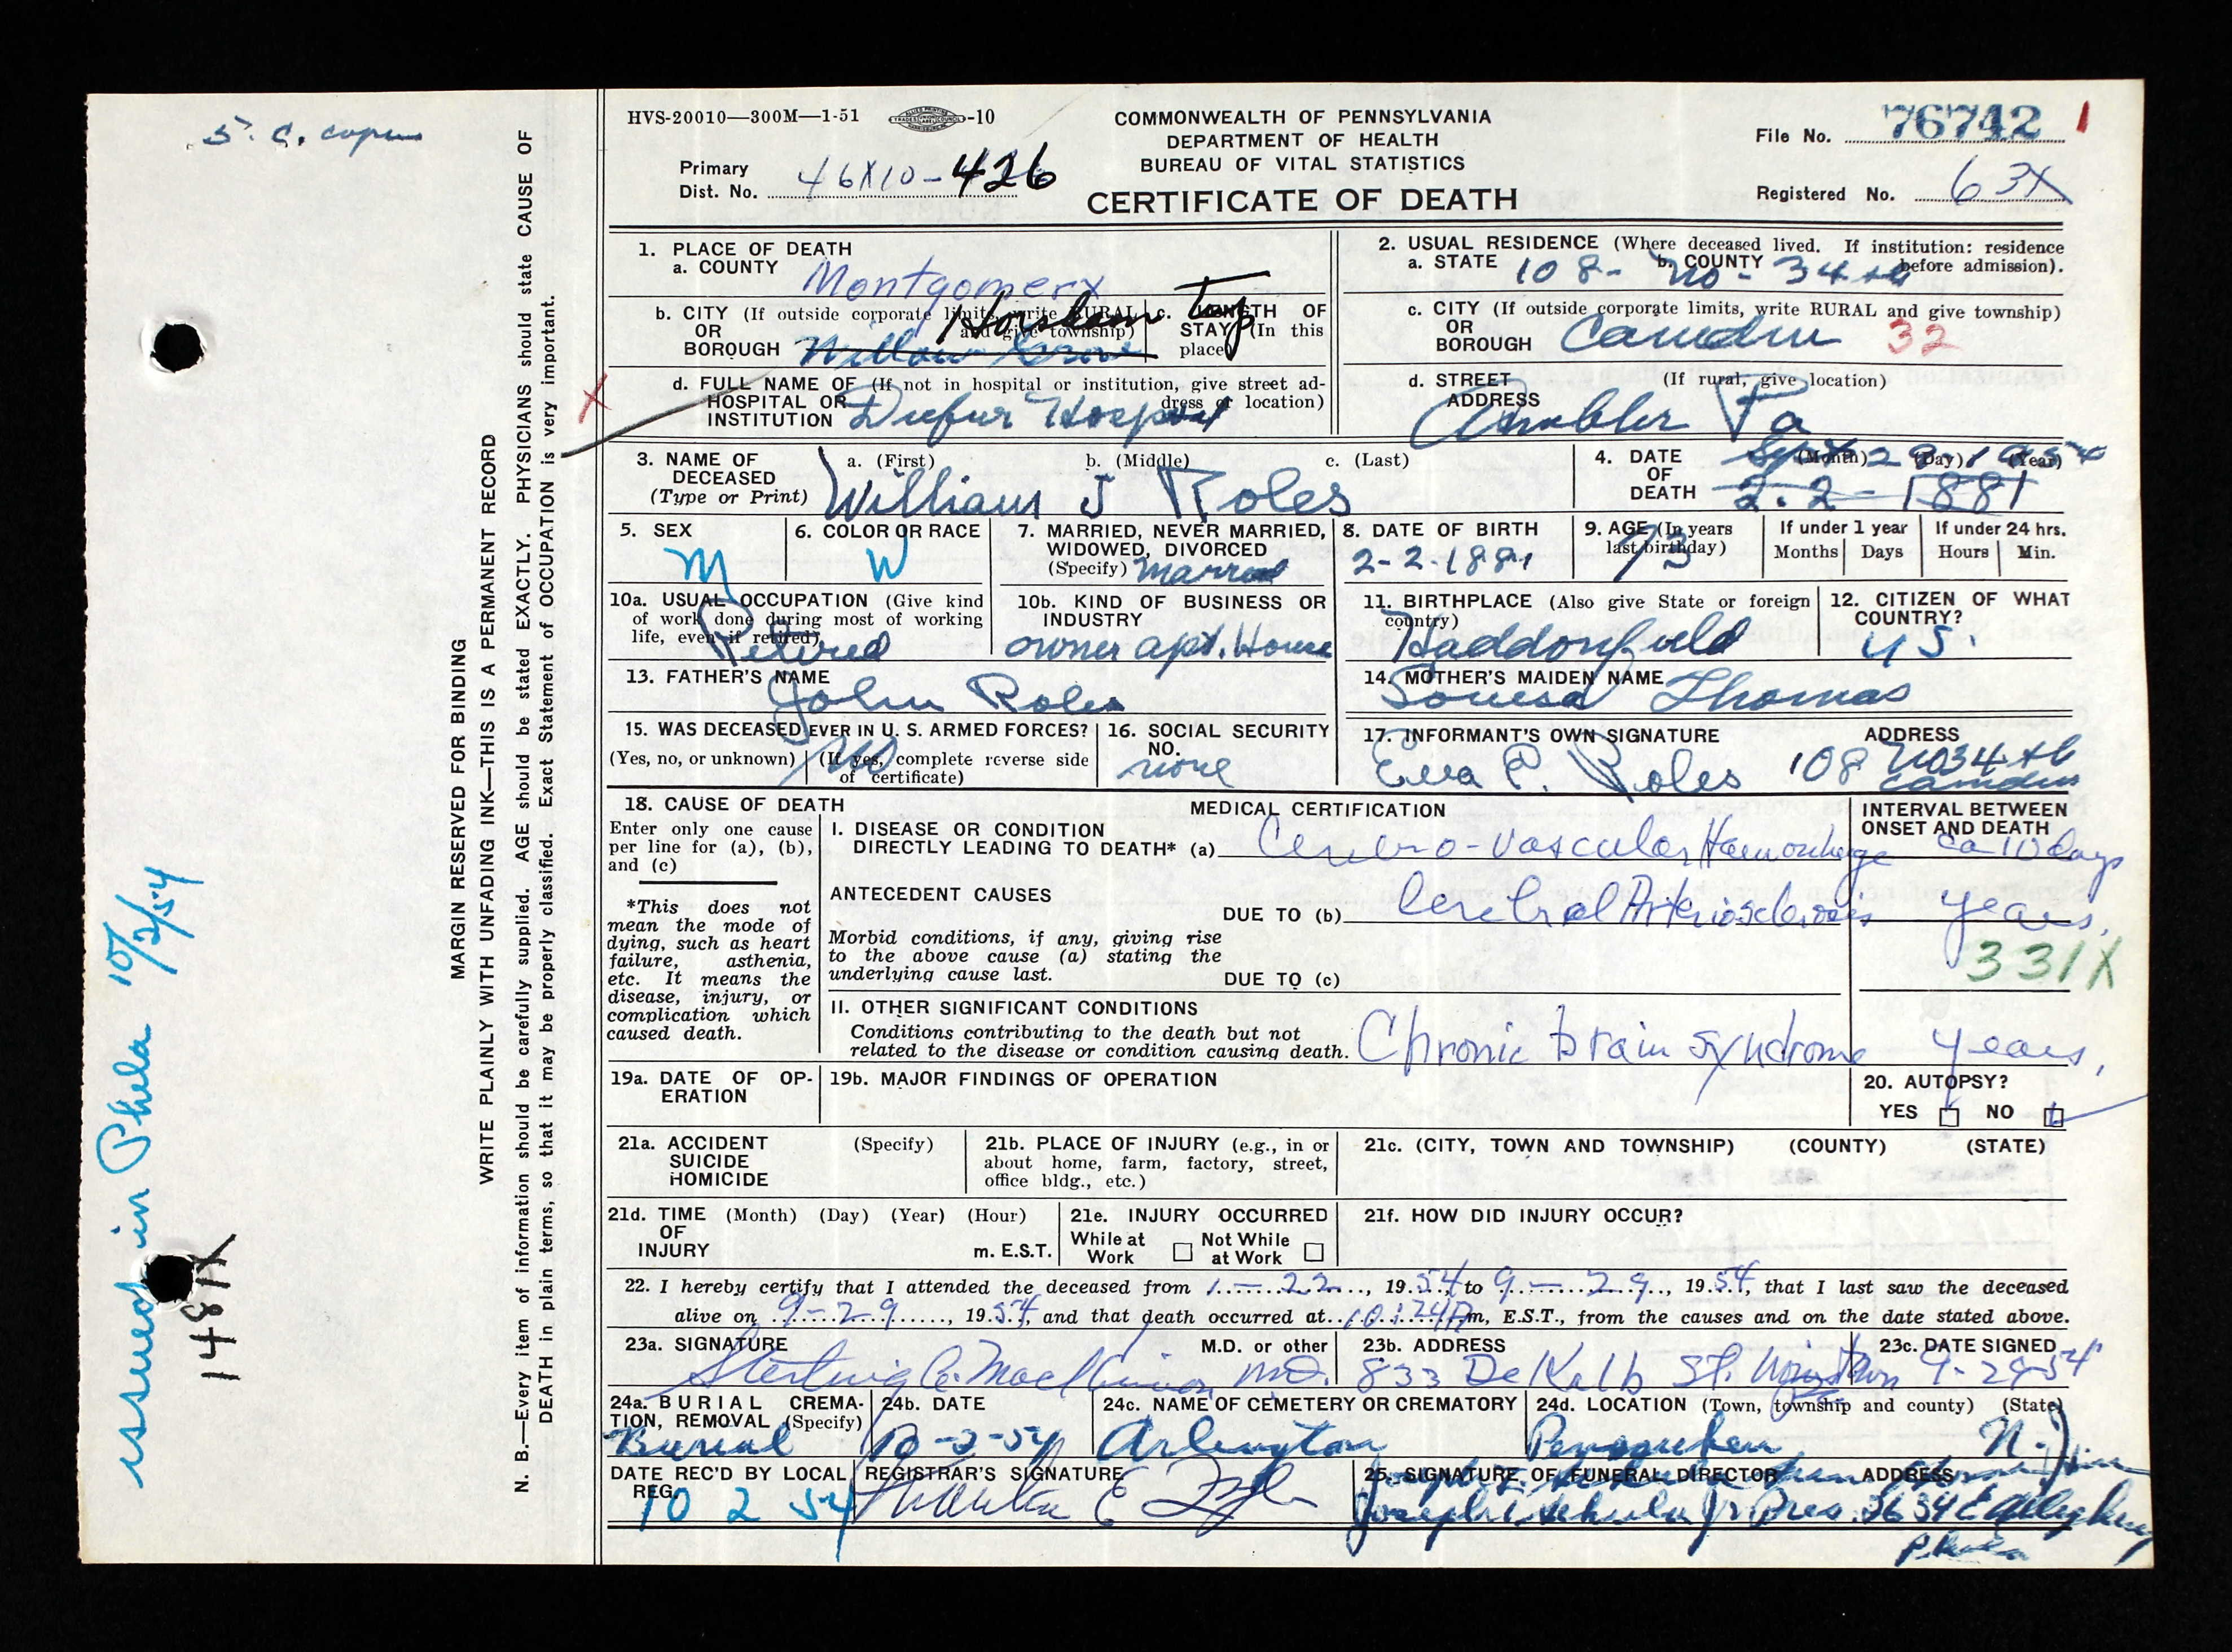 5. C. copies
HVS-20010—300M—1-51 -10
COMMONWEALTH OF PENNSYLVANIA
DEPARTMENT OF HEALTH
BUREAU OF VITAL STATISTICS
CERTIFICATE OF DEATH
File No. 76742 1
Primary
Dist. No. 46X10-426
Registered No. 63X
1. PLACE OF DEATH
a. COUNTY Montgomery
b. CITY (If outside corporate limits, write RURAL and give township)
OR
BOROUGH Willow Grove Horsham Twp
c. LENGTH OF
STAY (In this
place)
d. FULL NAME OF (If not in hospital or institution, give street ad-
HOSPITAL OR dress or location)
INSTITUTION Hospital
2. USUAL RESIDENCE (Where deceased lived. If institution: residence
before admission).
a. STATE b. COUNTY
108- No- 34th
c. CITY (If outside corporate limits, write RURAL and give township)
OR
BOROUGH Camden 32
d. STREET (If rural, give location)
ADDRESS
Ambler Pa
3. NAME OF
DECEASED
(Type or Print)
a. (First) b. (Middle) c. (Last)
William J Roles
4. DATE
OF
DEATH
(Month) (Day) (Year)
Sept 29 1954
2-2-1881
5. SEX
M
6. COLOR OR RACE
W
7. MARRIED, NEVER MARRIED,
WIDOWED, DIVORCED
(Specify) Married
8. DATE OF BIRTH
2-2-1881
9. AGE (In years
last birthday)
73
If under 1 year
Months Days
If under 24 hrs.
Hours Min.
10a. USUAL OCCUPATION (Give kind
of work done during most of working
life, even if retired)
Retired
10b. KIND OF BUSINESS OR
INDUSTRY
owner apt. House
11. BIRTHPLACE (Also give State or foreign
country)
Haddonfield
12. CITIZEN OF WHAT
COUNTRY?
U S.
13. FATHER'S NAME
John Roles
14. MOTHER'S MAIDEN NAME
Louesa Thomas
15. WAS DECEASED EVER IN U. S. ARMED FORCES?
(Yes, no, or unknown) (If yes, complete reverse side
of certificate)
No
16. SOCIAL SECURITY
NO.
none
17. INFORMANT'S OWN SIGNATURE ADDRESS
Eva P. Roles 108 No 34th
Camden
18. CAUSE OF DEATH
Enter only one cause
per line for (a), (b),
and (c)
*This does not
mean the mode of
dying, such as heart
failure, asthenia,
etc. It means the
disease, injury, or
complication which
caused death.
MEDICAL CERTIFICATION
INTERVAL BETWEEN
ONSET AND DEATH
I. DISEASE OR CONDITION
DIRECTLY LEADING TO DEATH* (a) Cerebro-vascular Haemorrhage ca 10 days
ANTECEDENT CAUSES
DUE TO (b) Cerebral Arteriosclerosis years.
Morbid conditions, if any, giving rise
to the above cause (a) stating the
underlying cause last.
DUE TO (c)
331X
II. OTHER SIGNIFICANT CONDITIONS
Conditions contributing to the death but not
related to the disease or condition causing death. Chronic brain syndrome years,
19a. DATE OF OP-
ERATION
19b. MAJOR FINDINGS OF OPERATION
20. AUTOPSY?
YES NO
21a. ACCIDENT (Specify)
SUICIDE
HOMICIDE
21b. PLACE OF INJURY (e.g., in or
about home, farm, factory, street,
office bldg., etc.)
21c. (CITY, TOWN AND TOWNSHIP) (COUNTY) (STATE)
21d. TIME (Month) (Day) (Year) (Hour)
OF
INJURY m. E.S.T.
21e. INJURY OCCURRED
While at Work Not While at Work
21f. HOW DID INJURY OCCUR?
22. I hereby certify that I attended the deceased from 1-22, 1954, to 9-29, 1954, that I last saw the deceased
alive on 9-29, 1954, and that death occurred at 10:24 m, E.S.T., from the causes and on the date stated above.
23a. SIGNATURE M.D. or other
M.D.
23b. ADDRESS
833 De Kalb St.
23c. DATE SIGNED
9-29-54
24a. BURIAL CREMA-
TION, REMOVAL (Specify)
Burial
24b. DATE
10-2-54
24c. NAME OF CEMETERY OR CREMATORY
Arlington
24d. LOCATION (Town, township and county) (State)
Pensauken N. J.
DATE REC'D BY LOCAL
REG.
10 2 54
REGISTRAR'S SIGNATURE
25. SIGNATURE OF FUNERAL DIRECTOR ADDRESS
Joseph Jr Pres. 3634 E Allegheny
Phila
MARGIN RESERVED FOR BINDING
WRITE PLAINLY WITH UNFADING INK—THIS IS A PERMANENT RECORD
N. B.—Every item of information should be carefully supplied. AGE should be stated EXACTLY. PHYSICIANS should state CAUSE OF
DEATH in plain terms, so that it may be properly classified. Exact Statement of OCCUPATION is very important.
issued in Phila 10/2/54
1481X